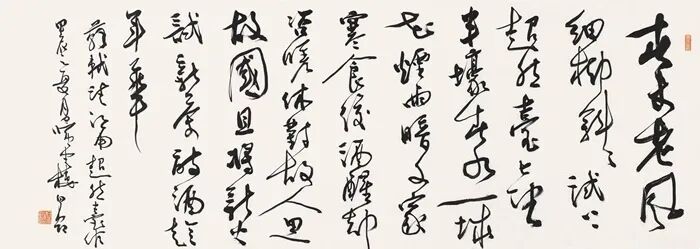 春未老風
細柳斜〻試上
超然臺上望
半壕春水一城
花煙雨暗千家
寒食後酒醒却
咨嗟休對故人思
故國且將新火
試新茶詩酒趁
年華
蘇軾望江南超然臺作
夏月